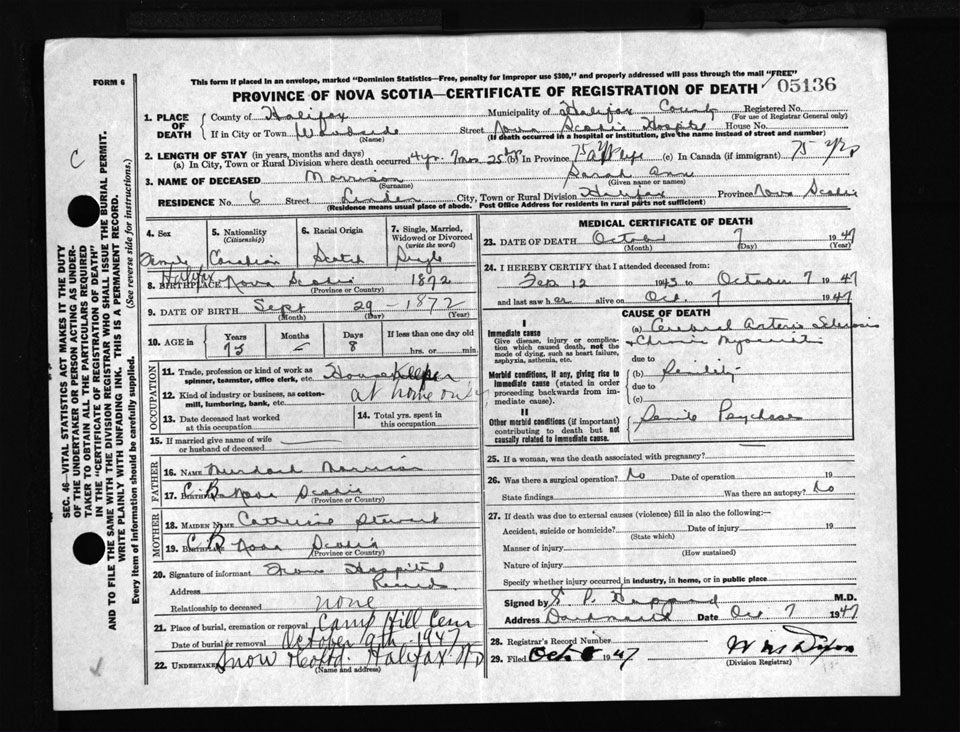 FORM 6
This form if placed in an envelope, marked "Dominion Statistics—Free, penalty for improper use $300," and properly addressed will pass through the mail "FREE"
PROVINCE OF NOVA SCOTIA—CERTIFICATE OF REGISTRATION OF DEATH
05136
1. PLACE OF DEATH
County of Halifax Municipality of Halifax County Registered No.
(For use of Registrar General only)
If in City or Town Woodside Street Nova Scotia Hospital House No.
(Name) (If death occurred in a hospital or institution, give the name instead of street and number)
2. LENGTH OF STAY (in years, months and days)
(a) In City, Town or Rural Division where death occurred 4 yr. 7 mos 25 dys (b) In Province 75 yr life (c) In Canada (if immigrant) 75 yrs
3. NAME OF DECEASED Morrison Sarah Ann
(Surname) (Given name or names)
RESIDENCE No. 6 Street Linden City, Town or Rural Division Halifax Province Nova Scotia
(Residence means usual place of abode. Post Office Address for residents in rural parts not sufficient)
4. Sex
Female
5. Nationality (Citizenship)
Canadian
6. Racial Origin
Scotch
7. Single, Married, Widowed or Divorced (write the word)
Single
8. BIRTHPLACE Halifax Nova Scotia 1872
(Province or Country)
9. DATE OF BIRTH Sept 29 - 1872
(Month) (Day) (Year)
10. AGE in
Years Months Days If less than one day old
75 - 8 hrs. or min.
OCCUPATION
11. Trade, profession or kind of work as spinner, teamster, office clerk, etc. Housekeeper
12. Kind of industry or business, as cotton-mill, lumbering, bank, etc. at home only
13. Date deceased last worked at this occupation
14. Total yrs. spent in this occupation
15. If married give name of wife or husband of deceased
FATHER
16. NAME Murdock Morrison
17. BIRTHPLACE C.B. Nova Scotia
(Province or Country)
MOTHER
18. MAIDEN NAME Catherine Stewart
19. BIRTHPLACE C.B. Nova Scotia
(Province or Country)
20. Signature of informant From Hospital Records
Address
Relationship to deceased none
21. Place of burial, cremation or removal Camp Hill Cem
Date of burial or removal October 9th - 1947
22. UNDERTAKER Snow & Co Ltd. Halifax NS
(Name and address)
MEDICAL CERTIFICATE OF DEATH
23. DATE OF DEATH October 7 1947
(Month) (Day) (Year)
24. I HEREBY CERTIFY that I attended deceased from:
Feb 12 1943 to October 7 1947
and last saw her alive on Oct. 7 1947
CAUSE OF DEATH
I
Immediate cause
Give disease, injury or complication which caused death, not the mode of dying, such as heart failure, asphyxia, asthenia, etc.
(a) Cerebral Arterio Sclerosis
& Chronic Myocarditis
due to
Morbid conditions, if any, giving rise to immediate cause (stated in order proceeding backwards from immediate cause).
(b) Senility
due to
(c)
II
Other morbid conditions (if important) contributing to death but not causally related to immediate cause.
Senile Psychoses
25. If a woman, was the death associated with pregnancy?
26. Was there a surgical operation? No Date of operation 19
State findings Was there an autopsy? No
27. If death was due to external causes (violence) fill in also the following:—
Accident, suicide or homicide? Date of injury 19
(State which)
Manner of injury
(How sustained)
Nature of injury
Specify whether injury occurred in industry, in home, or in public place
Signed by M.D.
Address Dartmouth Date Oct 7 1947
28. Registrar's Record Number
29. Filed Oct 8 1947 W M Dixon
(Division Registrar)
SEC. 46—VITAL STATISTICS ACT MAKES IT THE DUTY
OF THE UNDERTAKER OR PERSON ACTING AS UNDERTAKER TO OBTAIN ALL THE PARTICULARS REQUIRED
IN THE "CERTIFICATE OF REGISTRATION OF DEATH"
AND TO FILE THE SAME WITH THE DIVISION REGISTRAR WHO SHALL ISSUE THE BURIAL PERMIT.
WRITE PLAINLY WITH UNFADING INK. THIS IS A PERMANENT RECORD.
Every item of information should be carefully supplied. (See reverse side for instructions.)
C